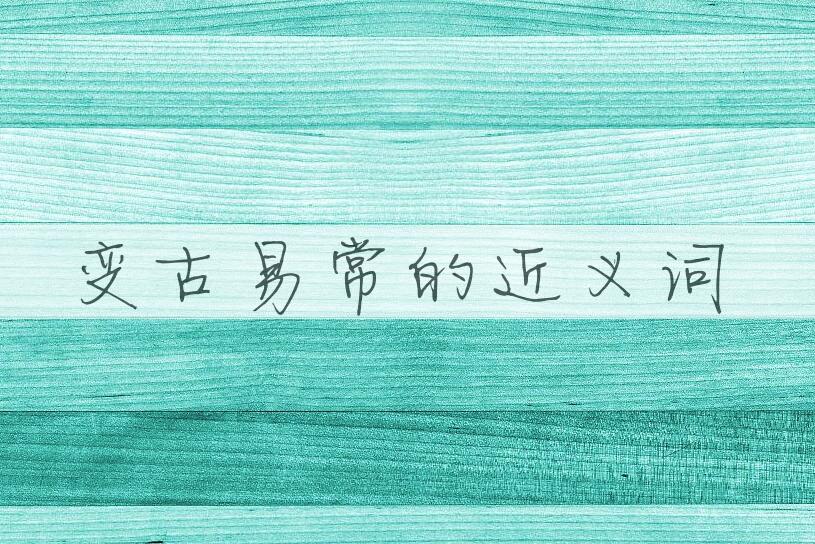 变古易常的近义词